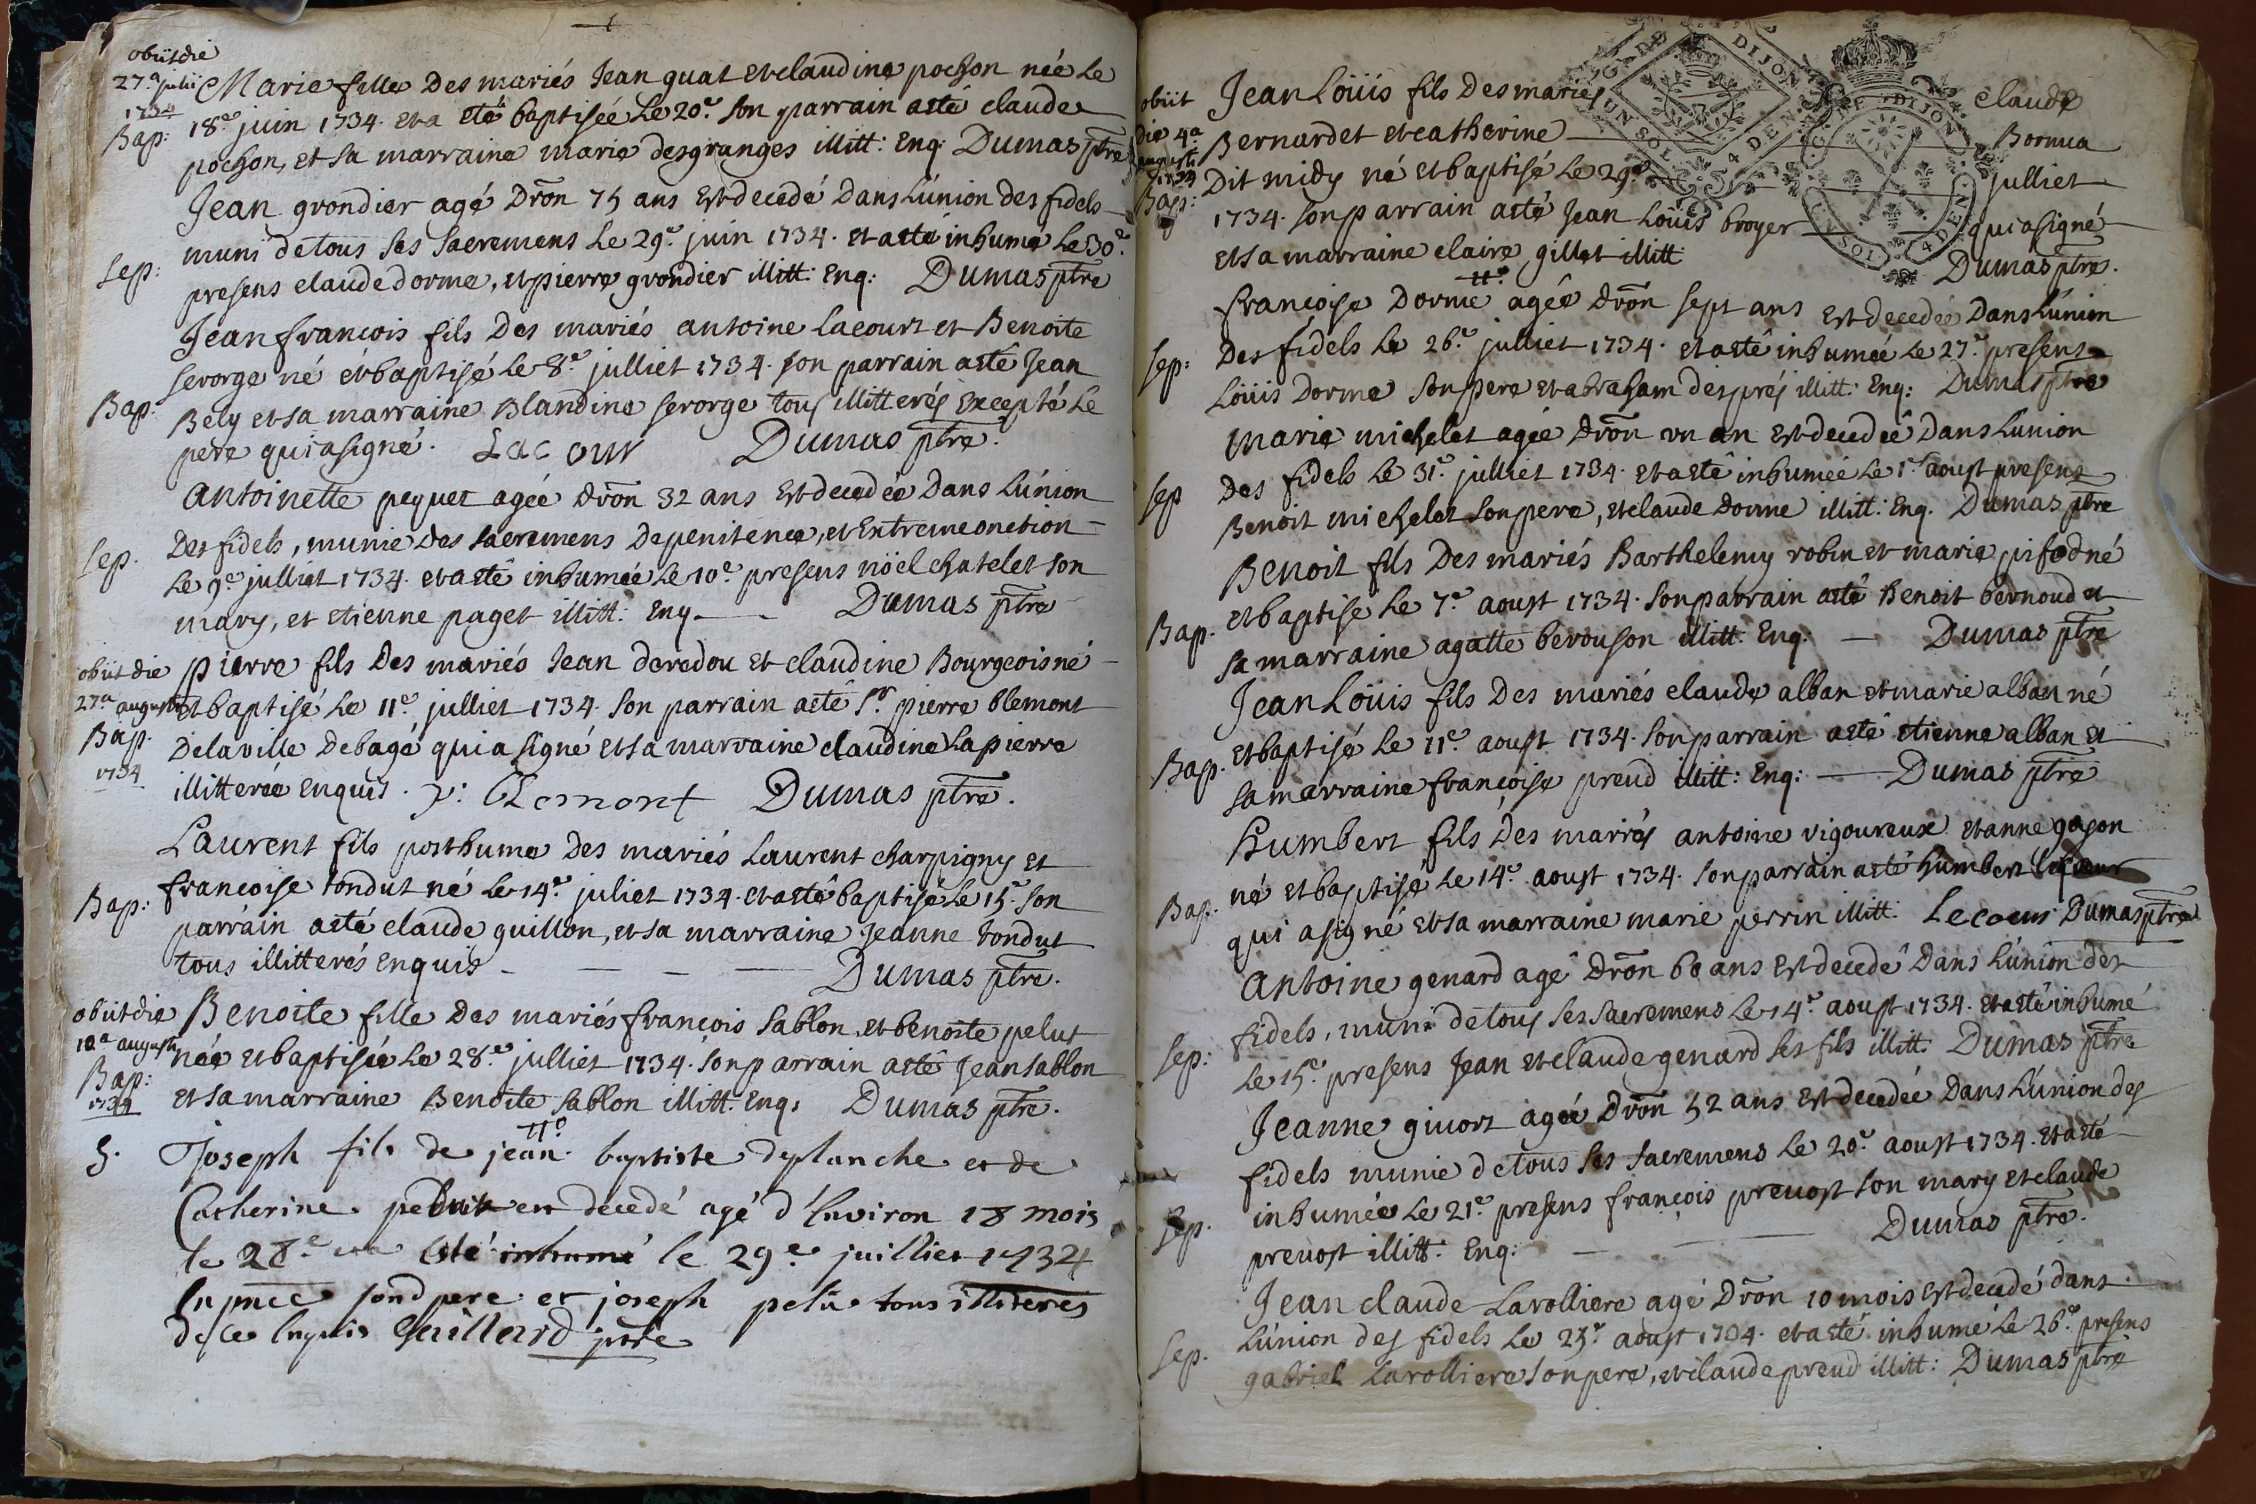 obiit die
27.a julii
1734
Bap:
Marie fille Des mariés Jean guat et claudine pochon née Le
18.e juin 1734. et a eté baptisée Le 20.e son parrain a eté claude
pochon, et sa marraine marie desgranges illitt: Enq: Dumas ptre
Jean grondier agé Dron 75 ans Est decedé Dans L'union des fidels
Sep:
muni de tous ses sacremens Le 29.e juin 1734. et a eté inhumé Le 30.e
presens claude dorme, et pierre grondier illitt: Enq: Dumas ptre
Jean francois fils Des mariés antoine Lacourt et Benoite
serorge né et baptisé Le 8.e julliet 1734. son parrain a eté Jean
Bap:
Bely et sa marraine Blandine serorge tous illitterés Excepté Le
pere qui a signé. Lacour Dumas ptre.
antoinette pequet agée dron 32 ans Est decedée Dans L'union
Sep.
Des fidels, munie Des sacremens De penitence, et Extreme onction
Le 9.e julliet 1734. et a eté inhumée Le 10.e presens nöel chatelet son
mary, et etienne paget illitt: Enq. Dumas ptre
obiit die
27a augusti
Bap.
1734
pierre fils Des mariés Jean deredou et claudine Bourgeois né
et baptisé Le 11.e julliet 1734. son parrain a eté sr. pierre blemont
De la ville De bagé qui a signé et sa marraine claudine Lapierre
illitterée enquis. p: blemont Dumas ptre.
Laurent fils posthume Des mariés Laurent charpigny et
Bap:
francoise tondut né Le 14.e juliet 1734. et a eté baptisé Le 15.e son
parrain a eté claude guillon, et sa marraine Jeanne tondut
tous illitterés enquis Dumas ptre.
obiit die
10.a augusti
Bap:
1734
Benoite fille Des mariés francois sablon, et benoite pelut
née et baptisée Le 28.e julliet 1734. son parrain a eté Jean sablon
et sa marraine Benoite sablon illitt. Enq: Dumas ptre.
S.
Joseph fils de jean baptiste dplanche et de
Catherine est decedé agé d'Environ 18 mois
le 28.e et a esté inhumé le 29.e juilliet 1734
En pnce sond pere et joseph pelu tous illiteres
de ce Enquis Gaillard ptre
obiit
die 4a
augusti
1734
Bap:
Jean Loüis fils Des mariés claude
Bernardet et catherine Bornua
Dit midy né et baptisé Le 29.e julliet
1734. son parrain a eté Jean Loüis broyer qui a signé
et sa marraine claire gillet illitt Dumas ptre.
GARDE DIJON
UN SOL 4 DEN
DIJON
UN SOL 4 DEN
francoise Dorme agée dron sept ans Est decedée Dans L'union
Sep:
Des fidels Le 26.e julliet 1734. et a eté inhumée Le 27.e presens
Loüis Dorme son pere et abraham després illitt: Enq: Dumas ptre
marie michelet agée dron un an Est decedée Dans L'union
Sep
Des fidels Le 31.e julliet 1734. et a eté inhumée Le 1.r aoust presens
Benoit michelet son pere, et claude dorme illitt: Enq. Dumas ptre
Benoit fils Des mariés Barthelemy robin et marie pifod né
Bap.
et baptisé Le 7.e aoust 1734. son parrain a eté Benoit bernoud et
sa marraine agatte berouson illitt: Enq: Dumas ptre
Jean Loüis fils Des mariés claude alban et marie alban né
Bap.
et baptisé Le 11.e aoust 1734. son parrain a eté etienne alban et
sa marraine francoise preud illitt: Enq: Dumas ptre
Humbert fils Des mariés antoine vigoureux et anne gagon
Bap.
né et baptisé Le 14.e aoust 1734. son parrain a eté humbert
qui a signé et sa marraine marie perrin illitt: Lecoeur Dumas ptre
antoine genard agé dron 60 ans Est decedé Dans L'union des
Sep:
fidels, muni de tous ses sacremens Le 14.e aoust 1734. et a eté inhumé
Le 15.e presens Jean et claude genard ses fils illitt: Dumas ptre
Jeanne givort agée Dron 52 ans Est decedée Dans L'union des
fidels munie de tous ses sacremens Le 20.e aoust 1734. et a eté
Sep.
inhumée Le 21.e presens francois prevost son mary et claude
prevost illitt: Enq: Dumas ptre.
Jean claude Larolliere agé Dron 10 mois Est decedé dans
Sep.
L'union des fidels Le 25.e aoust 1734. et a eté inhumé Le 26.e presens
gabriel Larolliere son pere, et claude preud illitt: Dumas ptre